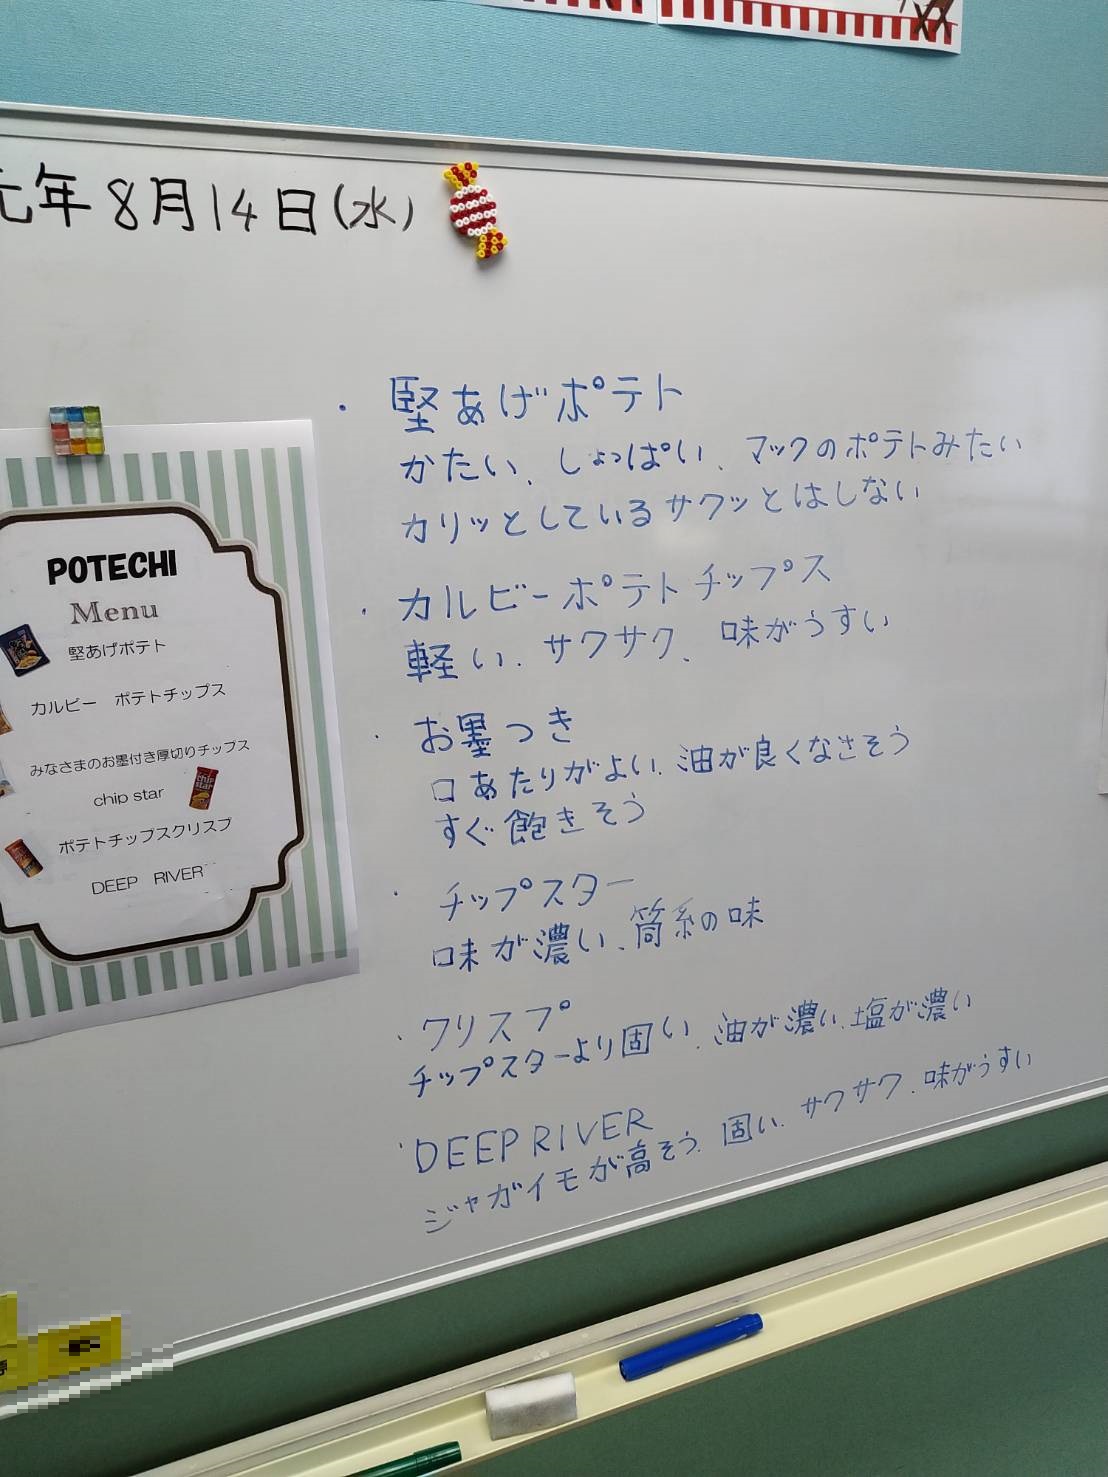 元年8月14日(水)
・堅あげポテト
かたい、しょっぱい、マックのポテトみたい
カリッとしているサクッとはしない
・カルビーポテトチップス
軽い、サクサク、味がうすい
・お墨つき
口あたりがよい、油が良くなさそう
すぐ飽きそう
・チップスター
味が濃い、筒系の味
・クリスプ
チップスターより固い、油が濃い、塩が濃い
・DEEP RIVER
ジャガイモが高そう、固い、サクサク、味がうすい
POTECHI
Menu
堅あげポテト
カルビー ポテトチップス
みなさまのお墨付き厚切りチップス
chip star
ポテトチップスクリスプ
DEEP RIVER